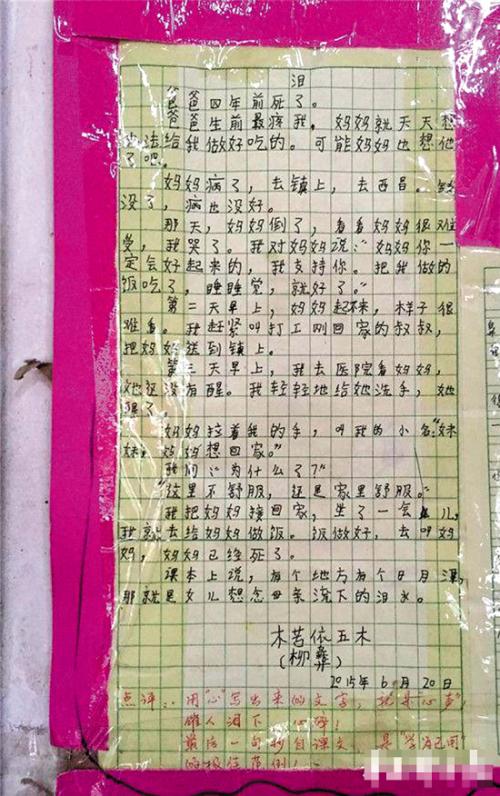 泪
爸爸四年前死了。
爸爸生前最疼我，妈妈就天天想
办法给我做好吃的。可能妈妈也想他
了吧。
妈妈病了，去镇上，去西昌。钱
没了，病也没好。
那天，妈妈倒了，看看妈妈很难
受，我哭了。我对妈妈说：“妈妈你一
定会好起来的，我支持你。把我做的
饭吃了，睡睡觉，就好了。”
第二天早上，妈妈起不来，样子很
难看。我赶紧叫打工刚回家的叔叔，
把妈妈送到镇上。
第三天早上，我去医院看妈妈，
她还没有醒。我轻轻地给她洗手，她
醒了。
妈妈拉着我的手，叫我的小名：“妹
妹，妈妈想回家。”
我问：“为什么了？”
“这里不舒服，还是家里舒服。”
我把妈妈接回家，坐了一会儿，
我就去给妈妈做饭。饭做好，去叫妈
妈，妈妈已经死了。
课本上说，有个地方有个日月潭，
那就是女儿想念母亲流下的泪水。
木苦依五木
（柳彝）
2015年6月20日
点评：用“心”写出来的文字，就是“心声”，
催人泪下 心碎！
最后一句抄自课文，是“学为己用”
的极佳范例！